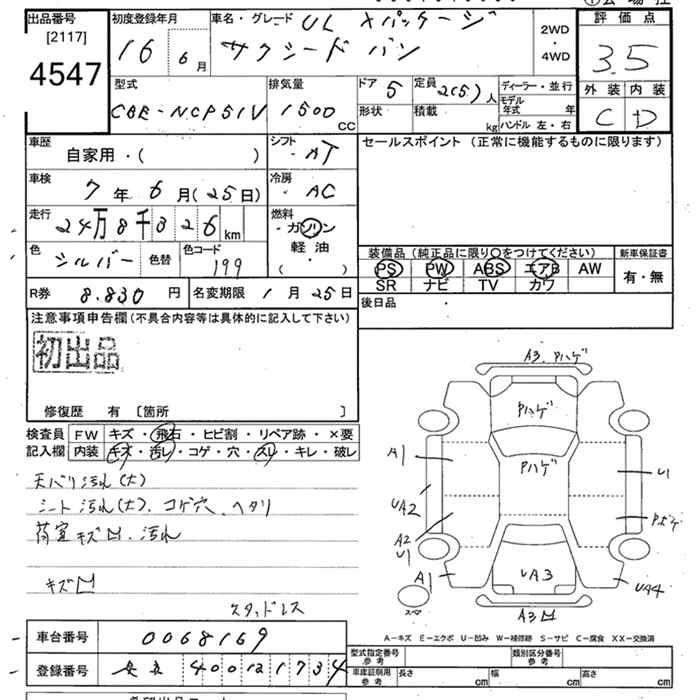 出品番号 初度登録年月 車名・グレード UL Xパッケージ 評価点
[2117] 16 6月 サクシードバン 2WD・4WD 3.5
4547
型式 排気量 ドア 5 定員 2(5)人 ディーラー・並行 外装 内装
CBE-NCP51V 1500CC 形状 積載 kg モデル年式 年 C D
ハンドル 左・右
車歴 シフト セールスポイント (正常に機能するものに限ります)
自家用・( ) ・AT
車検 冷房
7年6月(25日) ・AC
走行 燃料
24万8千826km ・ガソリン
色 色替 色コード 軽油 装備品(純正品に限り〇をつけてください) 新車保証書
シルバー 199 ・( ) PS PW ABS エアB AW 有・無
SR ナビ TV カワ
R券 8.830円 名変期限 1月25日 後日品
注意事項申告欄(不具合内容等は具体的に記入して下さい)
初出品
修復歴 有 〔箇所 〕
検査員 FW キズ・飛石・ヒビ割・リペア跡・×要
記入欄 内装 キズ・汚レ・コゲ・穴・スレ・キレ・破レ
天バリ汚れ(大)
シート汚れ(大)、コゲ穴、ヘタリ
荷室キズ凹、汚れ
キズ凹
スタッドレス
A3 Pハゲ
Pハゲ
Pハゲ
A1 U1
UA2
A2 Pボケ
U1
A1 UA3 UA4
A3凹
A-キズ E-エクボ U-凹み W-補修跡 S-サビ C-腐食 XX-交換済
車台番号 0068169
登録番号 400 1734
型式指定番号 参考 類別区分番号 参考
車庫証明用 参考 長さ cm 幅 cm 高さ cm